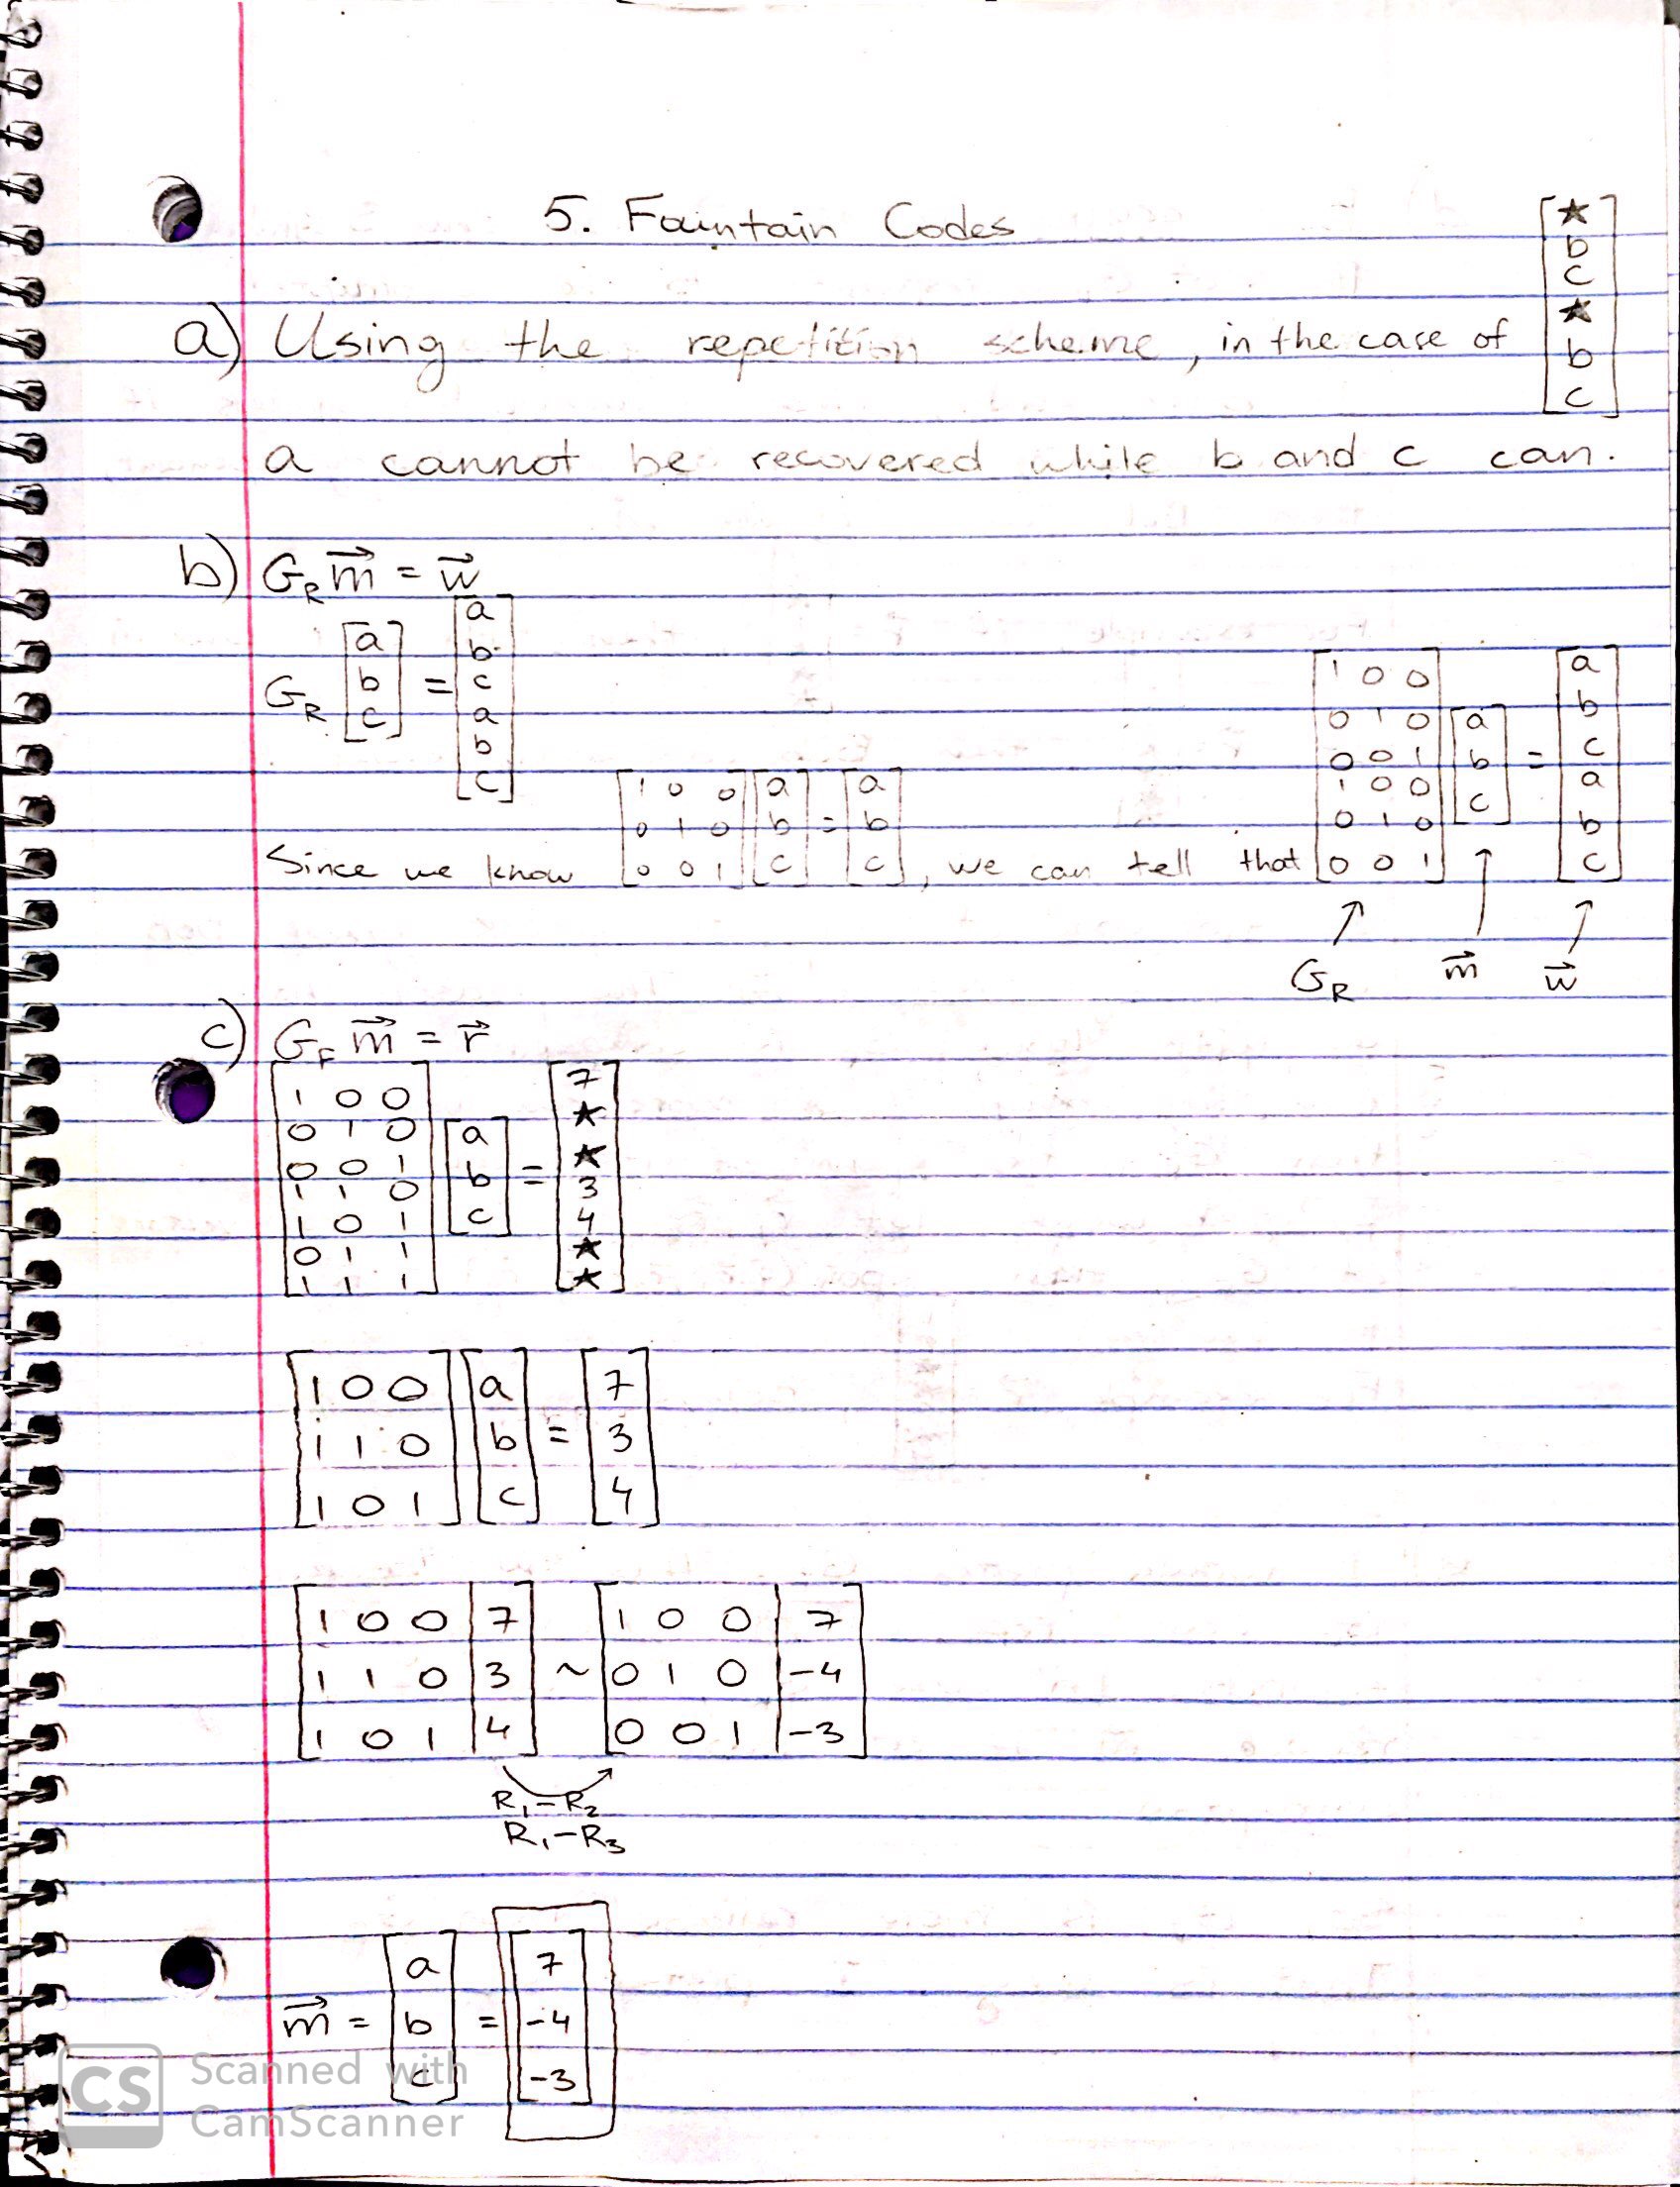 5. Fountain Codes
a) Using the repetition scheme, in the case of [★ b c ★ b c]
a cannot be recovered while b and c can.
b) G_R m⃗ = w⃗
G_R [a b c] = [a b c a b c]
Since we know [1 0 0; 0 1 0; 0 0 1] [a b c] = [a b c], we can tell that [1 0 0; 0 1 0; 0 0 1; 1 0 0; 0 1 0; 0 0 1] [a b c] = [a b c a b c]
↑ ↑ ↑
G_R m⃗ w⃗
c) G_F m⃗ = r⃗
[1 0 0; 0 1 0; 0 0 1; 1 1 0; 1 0 1; 0 1 1; 1 1 1] [a b c] = [7 ★ ★ 3 4 ★ ★]
[1 0 0; 1 1 0; 1 0 1] [a b c] = [7 3 4]
[1 0 0 | 7; 1 1 0 | 3; 1 0 1 | 4] ~ [1 0 0 | 7; 0 1 0 | -4; 0 0 1 | -3]
R₁-R₂
R₁-R₃
m⃗ = [a b c] = [7 -4 -3]
CS Scanned with
CamScanner